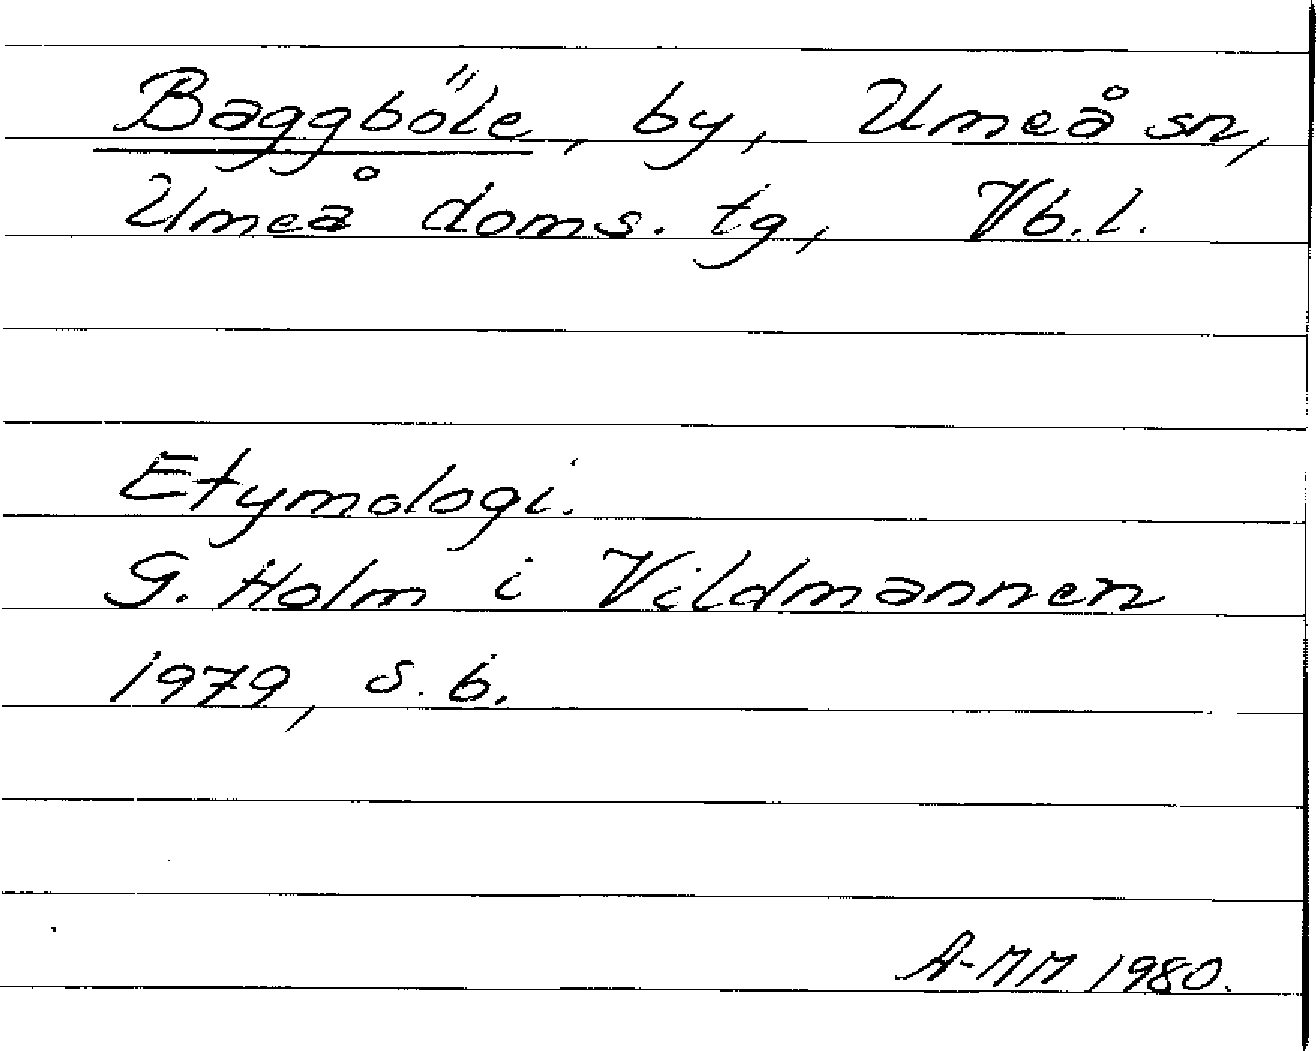 Baggböle, by, Umeå sn,
Umeå doms. tg, Vb. l.
Etymologi.
G. Holm i Vildmannen
1979, s. 6.
A-MM 1980.